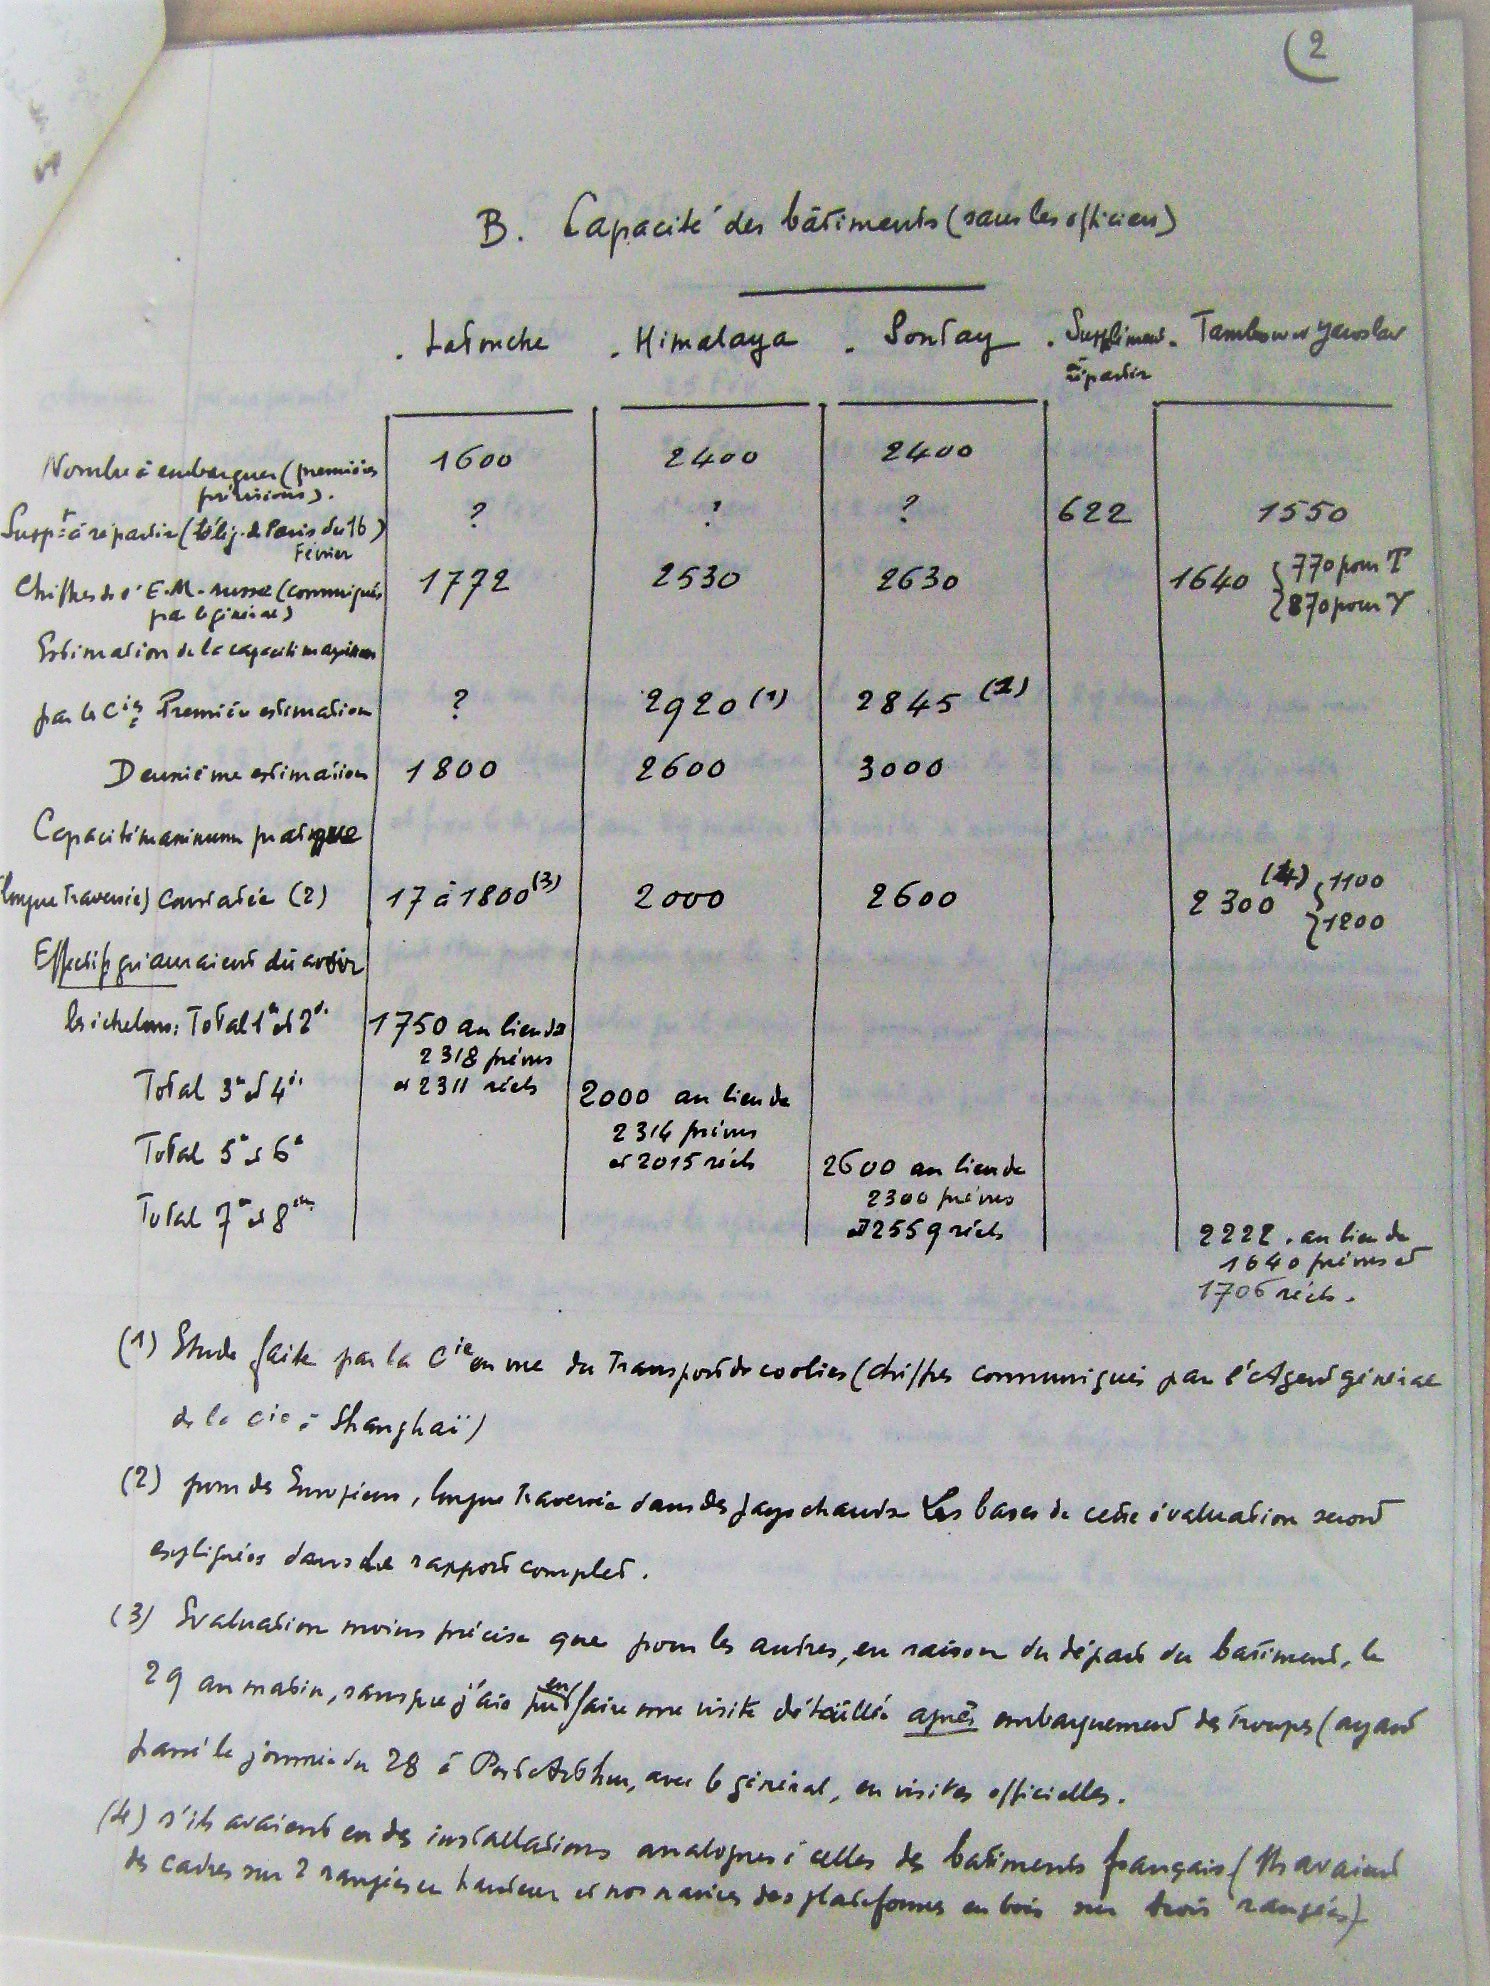 (2
B. Capacité des bâtiments (sans les officiers)
. Latouche . Himalaya . Sontay . Supplément . Tambow et Yaroslav
à répartir
Nombre à embarquer (premières 1600 2400 2400
prévisions).
Suppt à répartir (télég. de Paris du 16 ? ? ? 622 1550
Février)
Chiffres de l'E.-M. russe (communiqués 1772 2530 2630 1640 { 770 pour T
par le général) { 870 pour Y
Estimation de la capacité maximum
par la Cie. Première estimation ? 2920 (1) 2845 (1)
Deuxième estimation 1800 2600 3000
Capacité maximum pratique
(longue traversée) constatée (2) 17 à 1800 (3) 2000 2600 2300 (4) { 1100
{ 1200
Effectifs qu'auraient dû avoir
les échelons: Total 1er et 2e. 1750 au lieu de
2318 prévus
Total 3e et 4e. et 2311 réels 2000 au lieu de
2314 prévus
Total 5e et 6e et 2015 réels 2600 au lieu de
2300 prévus
Total 7e et 8em et 2559 réels 2222. au lieu de
1640 prévus et
1706 réels.
(1) Etude faite par la Cie en vue du transport de coolies (chiffres communiqués par l'Agent général
de la Cie à Shanghaï)
(2) pour des Européens, longue traversée dans des pays chauds. Les bases de cette évaluation seront
expliquées dans le rapport complet.
(3) Evaluation moins précise que pour les autres, en raison du départ du bâtiment, le
29 au matin, sans que j'aie pu en faire une visite détaillée après embarquement des troupes (ayant
passé la journée du 28 à Port Arthur, avec le général, en visites officielles.
(4) s'ils avaient eu des installations analogues à celles des batiments français (Ils avaient
des cadres sur 2 rangées en hauteur et nos navires des plateformes en bois sur trois rangées)